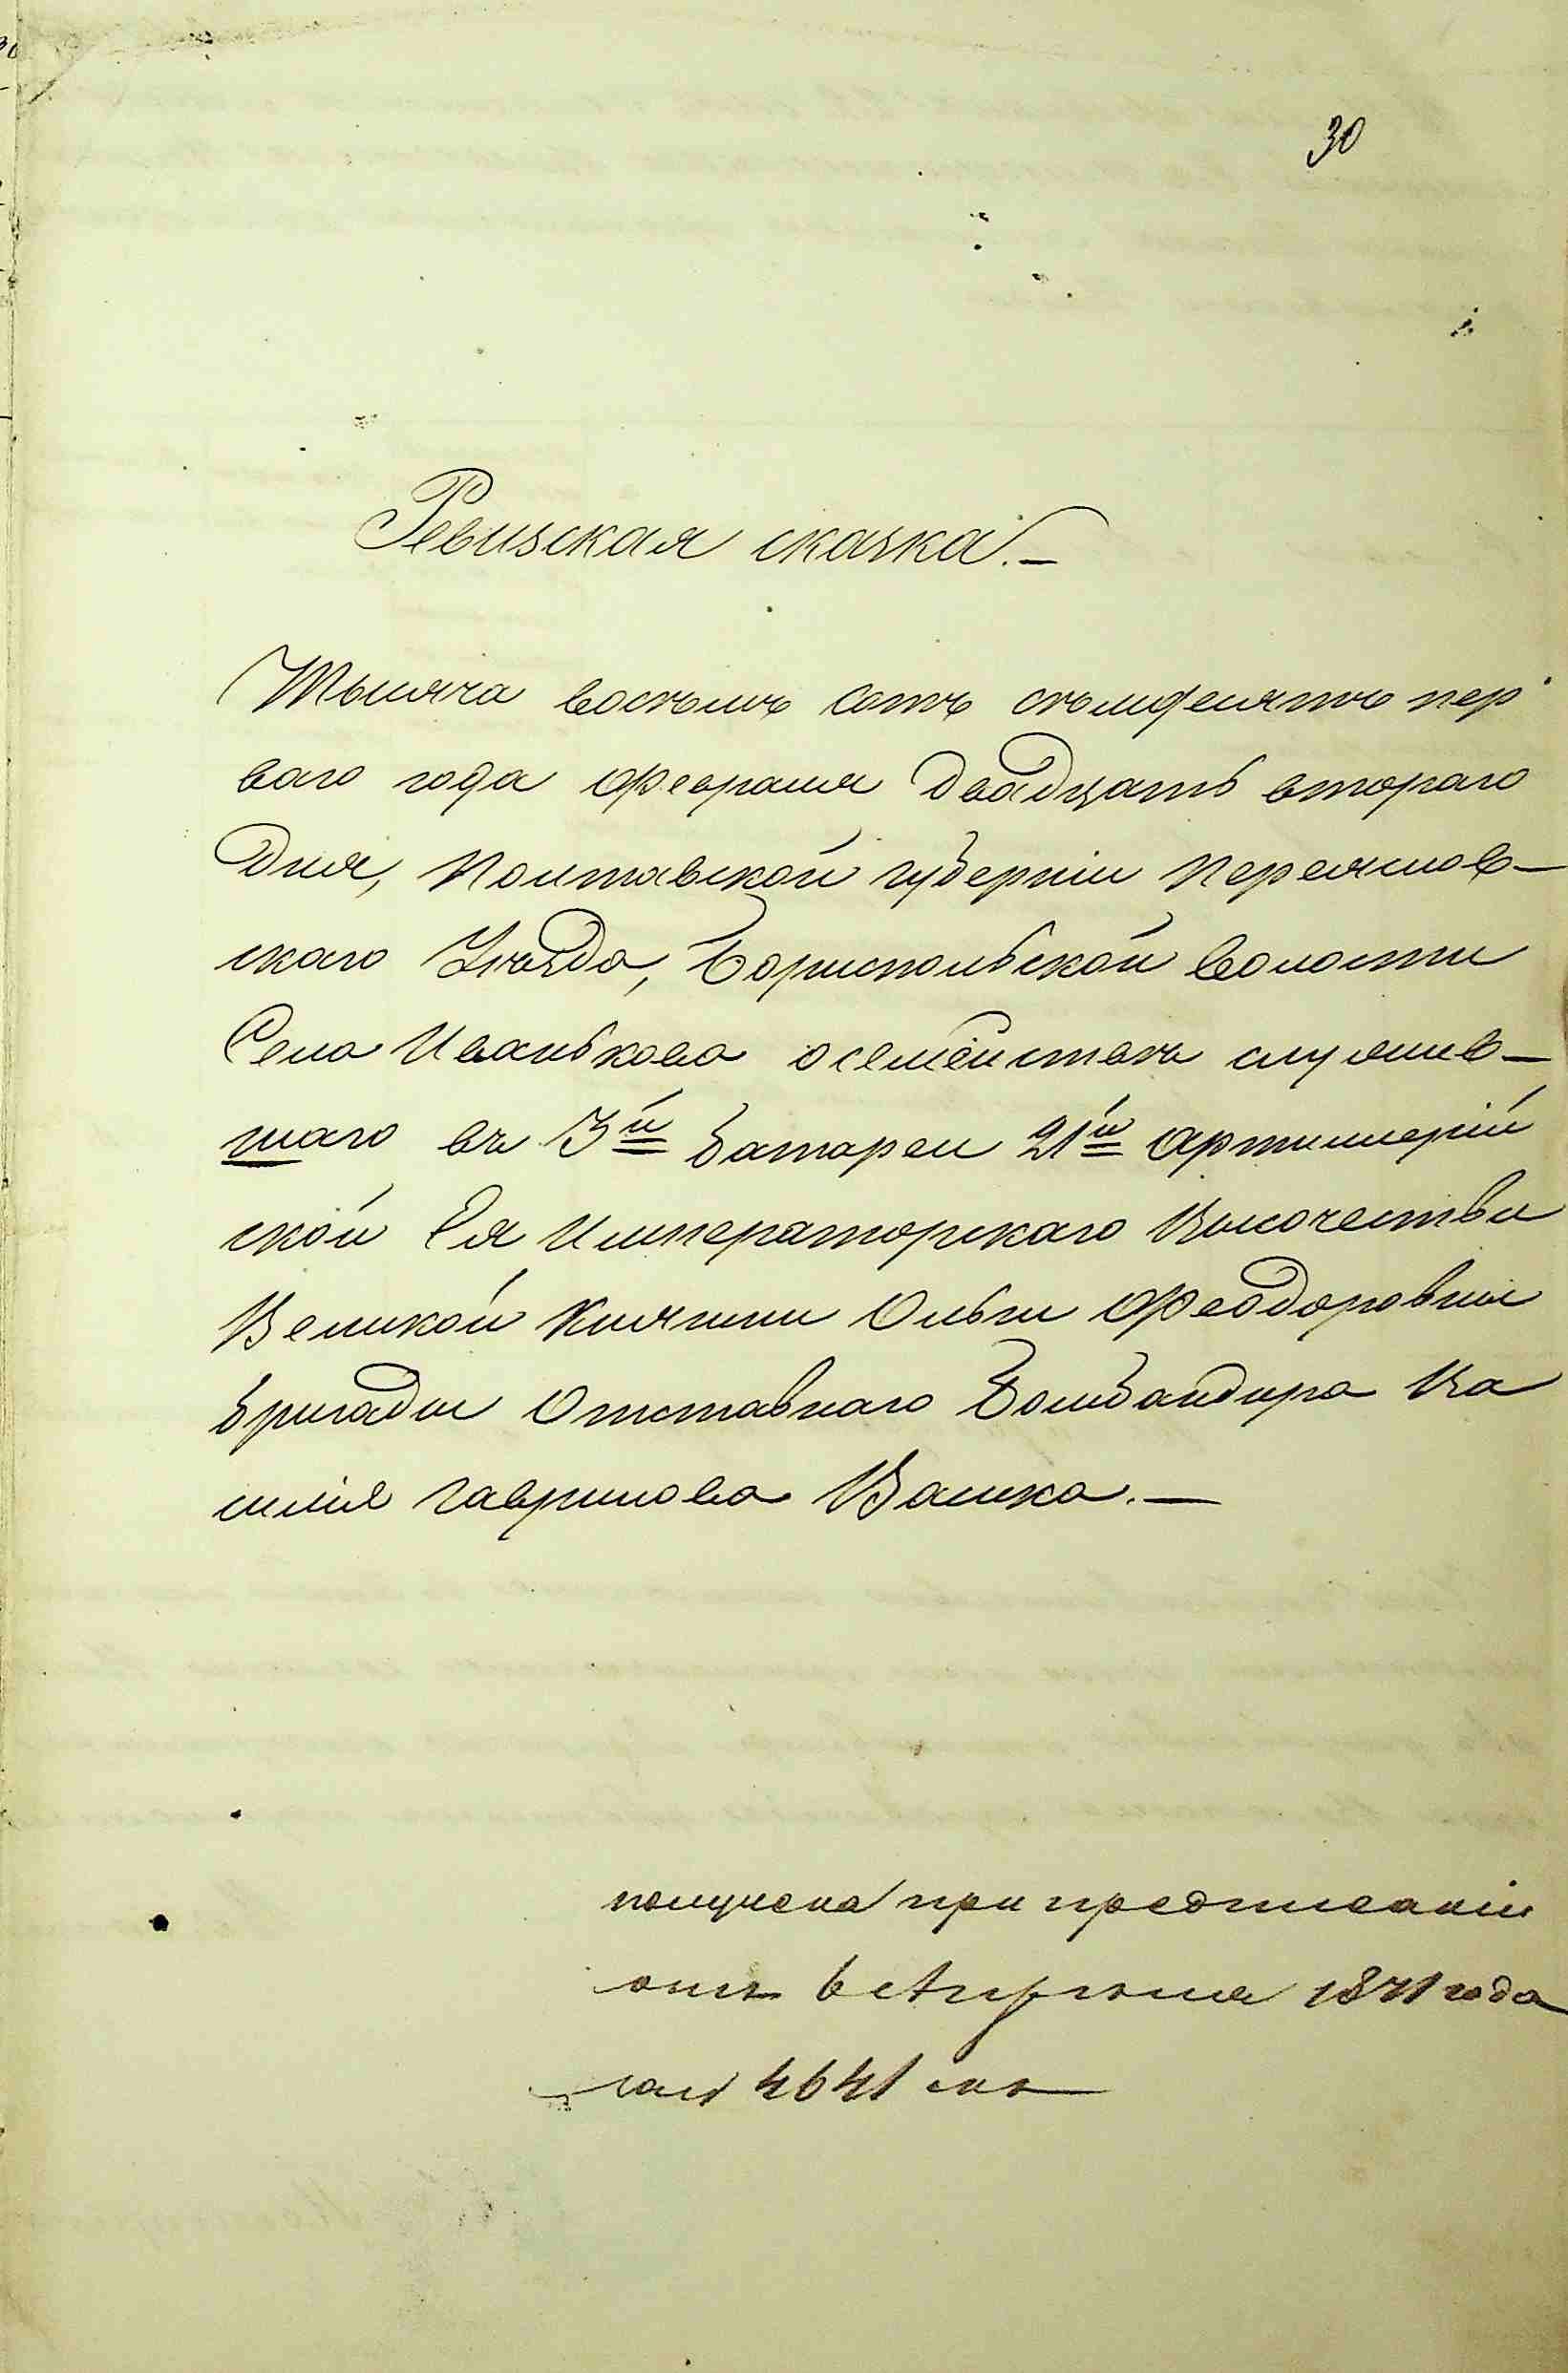 30
Ревизская сказка.—
Тысяча восемь сотъ семьдесятъ пер
ваго года Февраля двадцать втораго
Дня, Полтавской губерніи Переяслов—
скаго Уѣзда, Бориспольской волости
Села Иванькова о семействѣ служив—
шаго въ 3й батареи 21й Артиллерій
ской Ея Императорскаго Высочества
Великой Княгини Ольги Феодоровны
бригады Отставнаго Бомбандира Ва
силія Гаврилова Валика.—
получена при предписаніи
отъ 6 Апрѣля 1871 года
4641